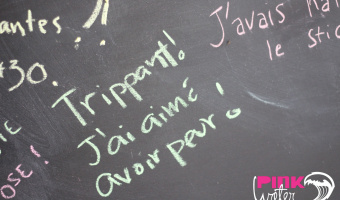 antes !!
J'avais
le
$30.
Trippant!
J'ai aimé
avoir peur!
OSE!
PINK
water